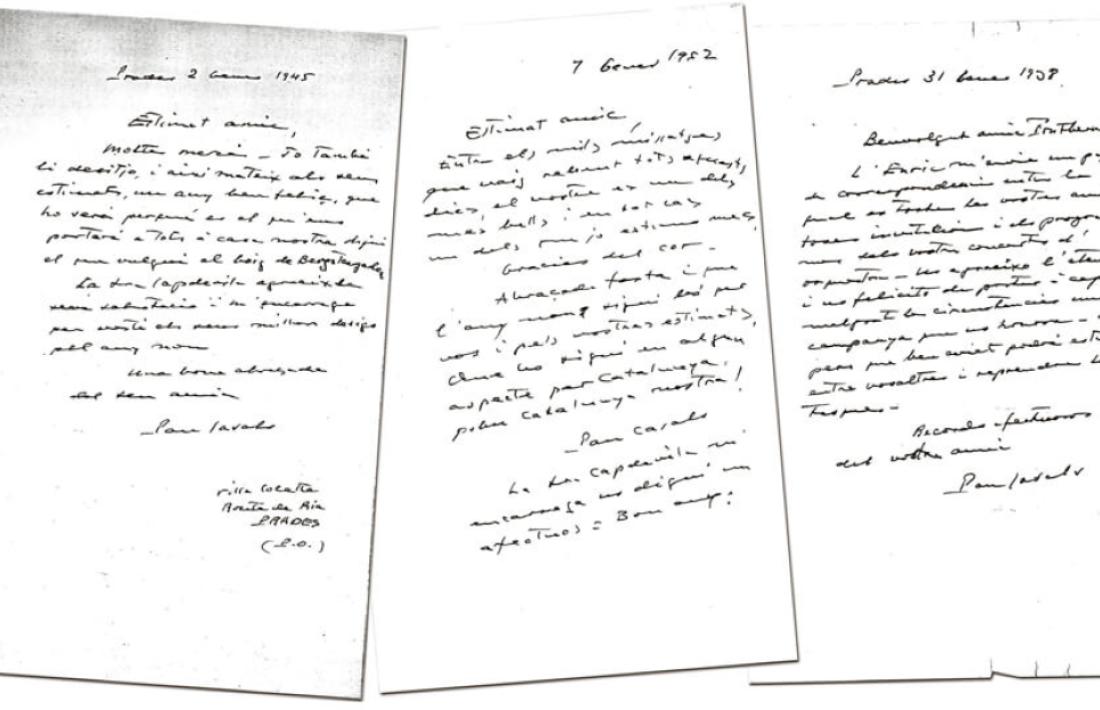 Prades 2 Gener 1945
Estimat amic,
Moltes mercès – Jo també
li desitjo, i així mateix als seus
estimats, un any ben feliç, que
ho serà perquè es el qu'ens
portarà a tots a casa nostra digui
el que vulgui el boig de
La Sra Capdevila
i m'encarrega
per vostè els seus millors desigs
pel any nou
Una bona abraçada
del seu amic
Pau Casals
Villa Colette
Route de Ria
PRADES
(P.O.)
7 Gener 1952
Estimat amic,
Entre els mils missatges
que vaig rebent tots aquests
dies, el vostre es un dels
mes bells i en tot cas
un dels que jo estimo mes,
Gracies del cor –
Abraçada forta i que
l'any nou sigui bó per
vos i pels vostres estimats,
Que ho sigui en algun
aspecte per Catalunya,
pobra Catalunya nostra!
Pau Casals
La Sra Capdevila m'
encarrega us digui un
afectuos = Bon any!
Prades 31 Gener 1938
Benvolgut amic
L'Enric m'envia un
de correspondencia entre la
qual es troben les vostres
invitacions i els
mes dels vostres concerts d'
orquestra –
i us felicito de portar – a
malgrat les circunstancies una
campanya que us honora –
pens que ben aviat podré
entre vosaltres i reprendre
tasques –
Records afectuosos
del vostre amic
Pau Casals